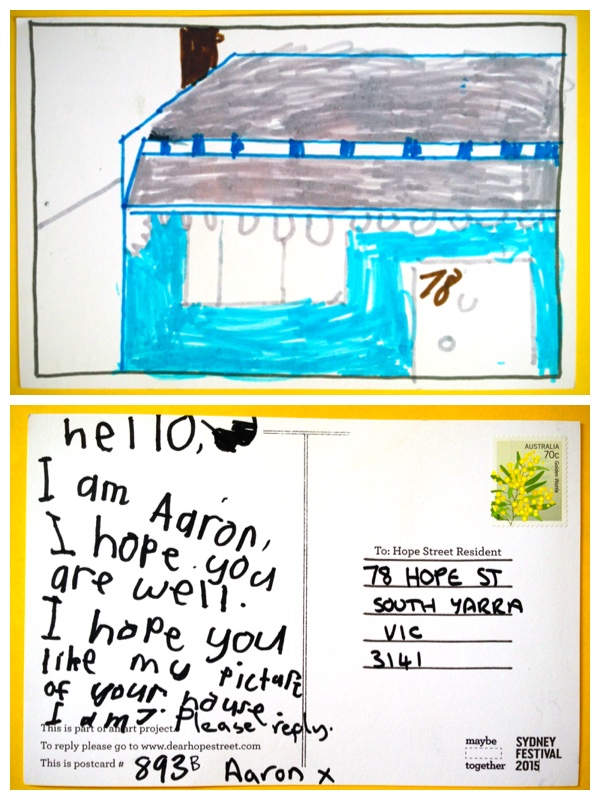 78
hello,
I am Aaron,
I hope you
are well.
I hope you
like my picture
of your house.
I am 7. Please reply.
This is part of an art project.
To reply please go to www.dearhopestreet.com
This is postcard # 893B
Aaron x
AUSTRALIA
70c
Golden Wattle
To: Hope Street Resident
78 HOPE ST
SOUTH YARRA
VIC
3141
maybe
together
SYDNEY
FESTIVAL
2015